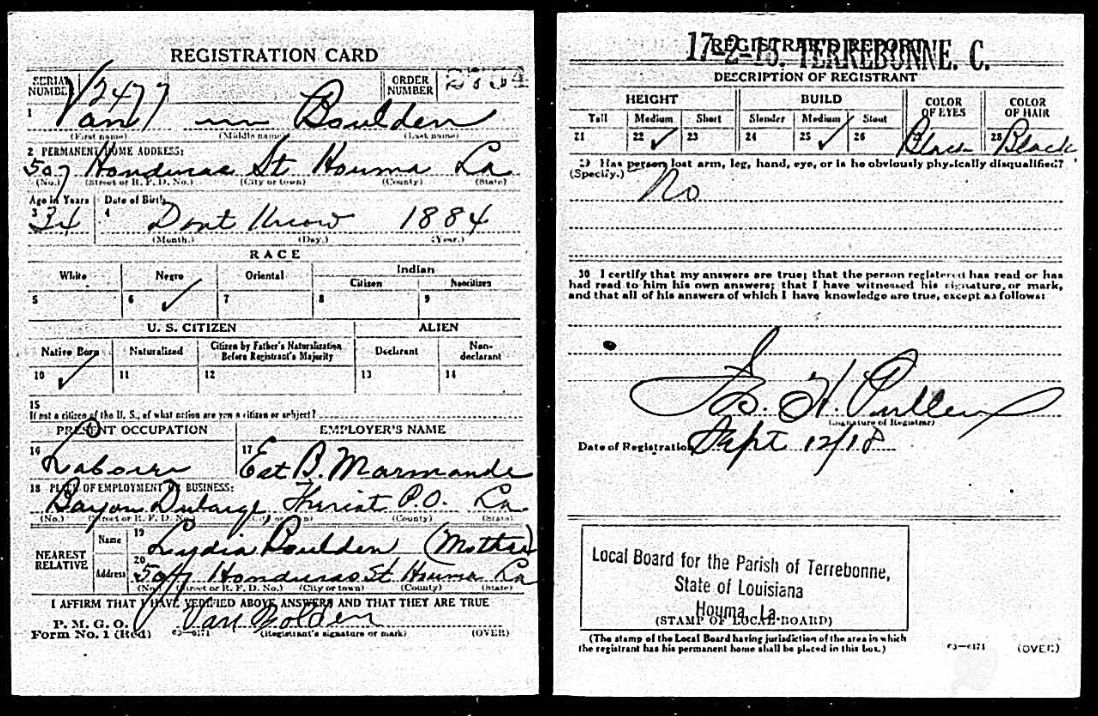 REGISTRATION CARD
SERIAL NUMBER V2477 ORDER NUMBER
1 Van Boulden
(First name) (Middle name) (Last name)
2 PERMANENT HOME ADDRESS:
507 Honduras St Houma La
(No.) (Street or R. F. D. No.) (City or town) (County) (State)
Age in Years Date of Birth
3 34 4 Dont Know 1884
(Month.) (Day.) (Year.)
RACE
White Negro Oriental Indian
Citizen Noncitizen
5 6 ✓ 7 8 9
U. S. CITIZEN ALIEN
Native Born Naturalized Citizen by Father's Naturalization Before Registrant's Majority Declarant Non-declarant
10 ✓ 11 12 13 14
15
If not a citizen of the U. S., of what nation are you a citizen or subject?
PRESENT OCCUPATION EMPLOYER'S NAME
16 Laborer 17 Est B. Marmande
18 PLACE OF EMPLOYMENT OR BUSINESS:
Bayou Dularge Theriot P.O. La
(No.) (Street or R. F. D. No.) (City or town) (County) (State)
NEAREST RELATIVE Name 19 Lydia Boulden (Mother)
Address 20 507 Honduras St Houma La
(No.) (Street or R. F. D. No.) (City or town) (County) (State)
I AFFIRM THAT I HAVE VERIFIED ABOVE ANSWERS AND THAT THEY ARE TRUE
P. M. G. O.
Form No. 1 (Red) 03—6171 Van Bolden
(Registrant's signature or mark) (OVER)
REGISTRAR'S REPORT
17-2-15. TERREBONNE. C.
DESCRIPTION OF REGISTRANT
HEIGHT BUILD COLOR OF EYES COLOR OF HAIR
Tall Medium Short Slender Medium Stout
21 22 ✓ 23 24 25 ✓ 26 27 Black 28 Black
29 Has person lost arm, leg, hand, eye, or is he obviously physically disqualified?
(Specify.) No
30 I certify that my answers are true; that the person registered has read or has
had read to him his own answers; that I have witnessed his signature or mark,
and that all of his answers of which I have knowledge are true, except as follows:
H. Pullen
(Signature of Registrar)
Date of Registration Sept 12/18
Local Board for the Parish of Terrebonne,
State of Louisiana
Houma, La.
(STAMP OF LOCAL BOARD)
(The stamp of the Local Board having jurisdiction of the area in which
the registrant has his permanent home shall be placed in this box.)
03—6171 (OVER)